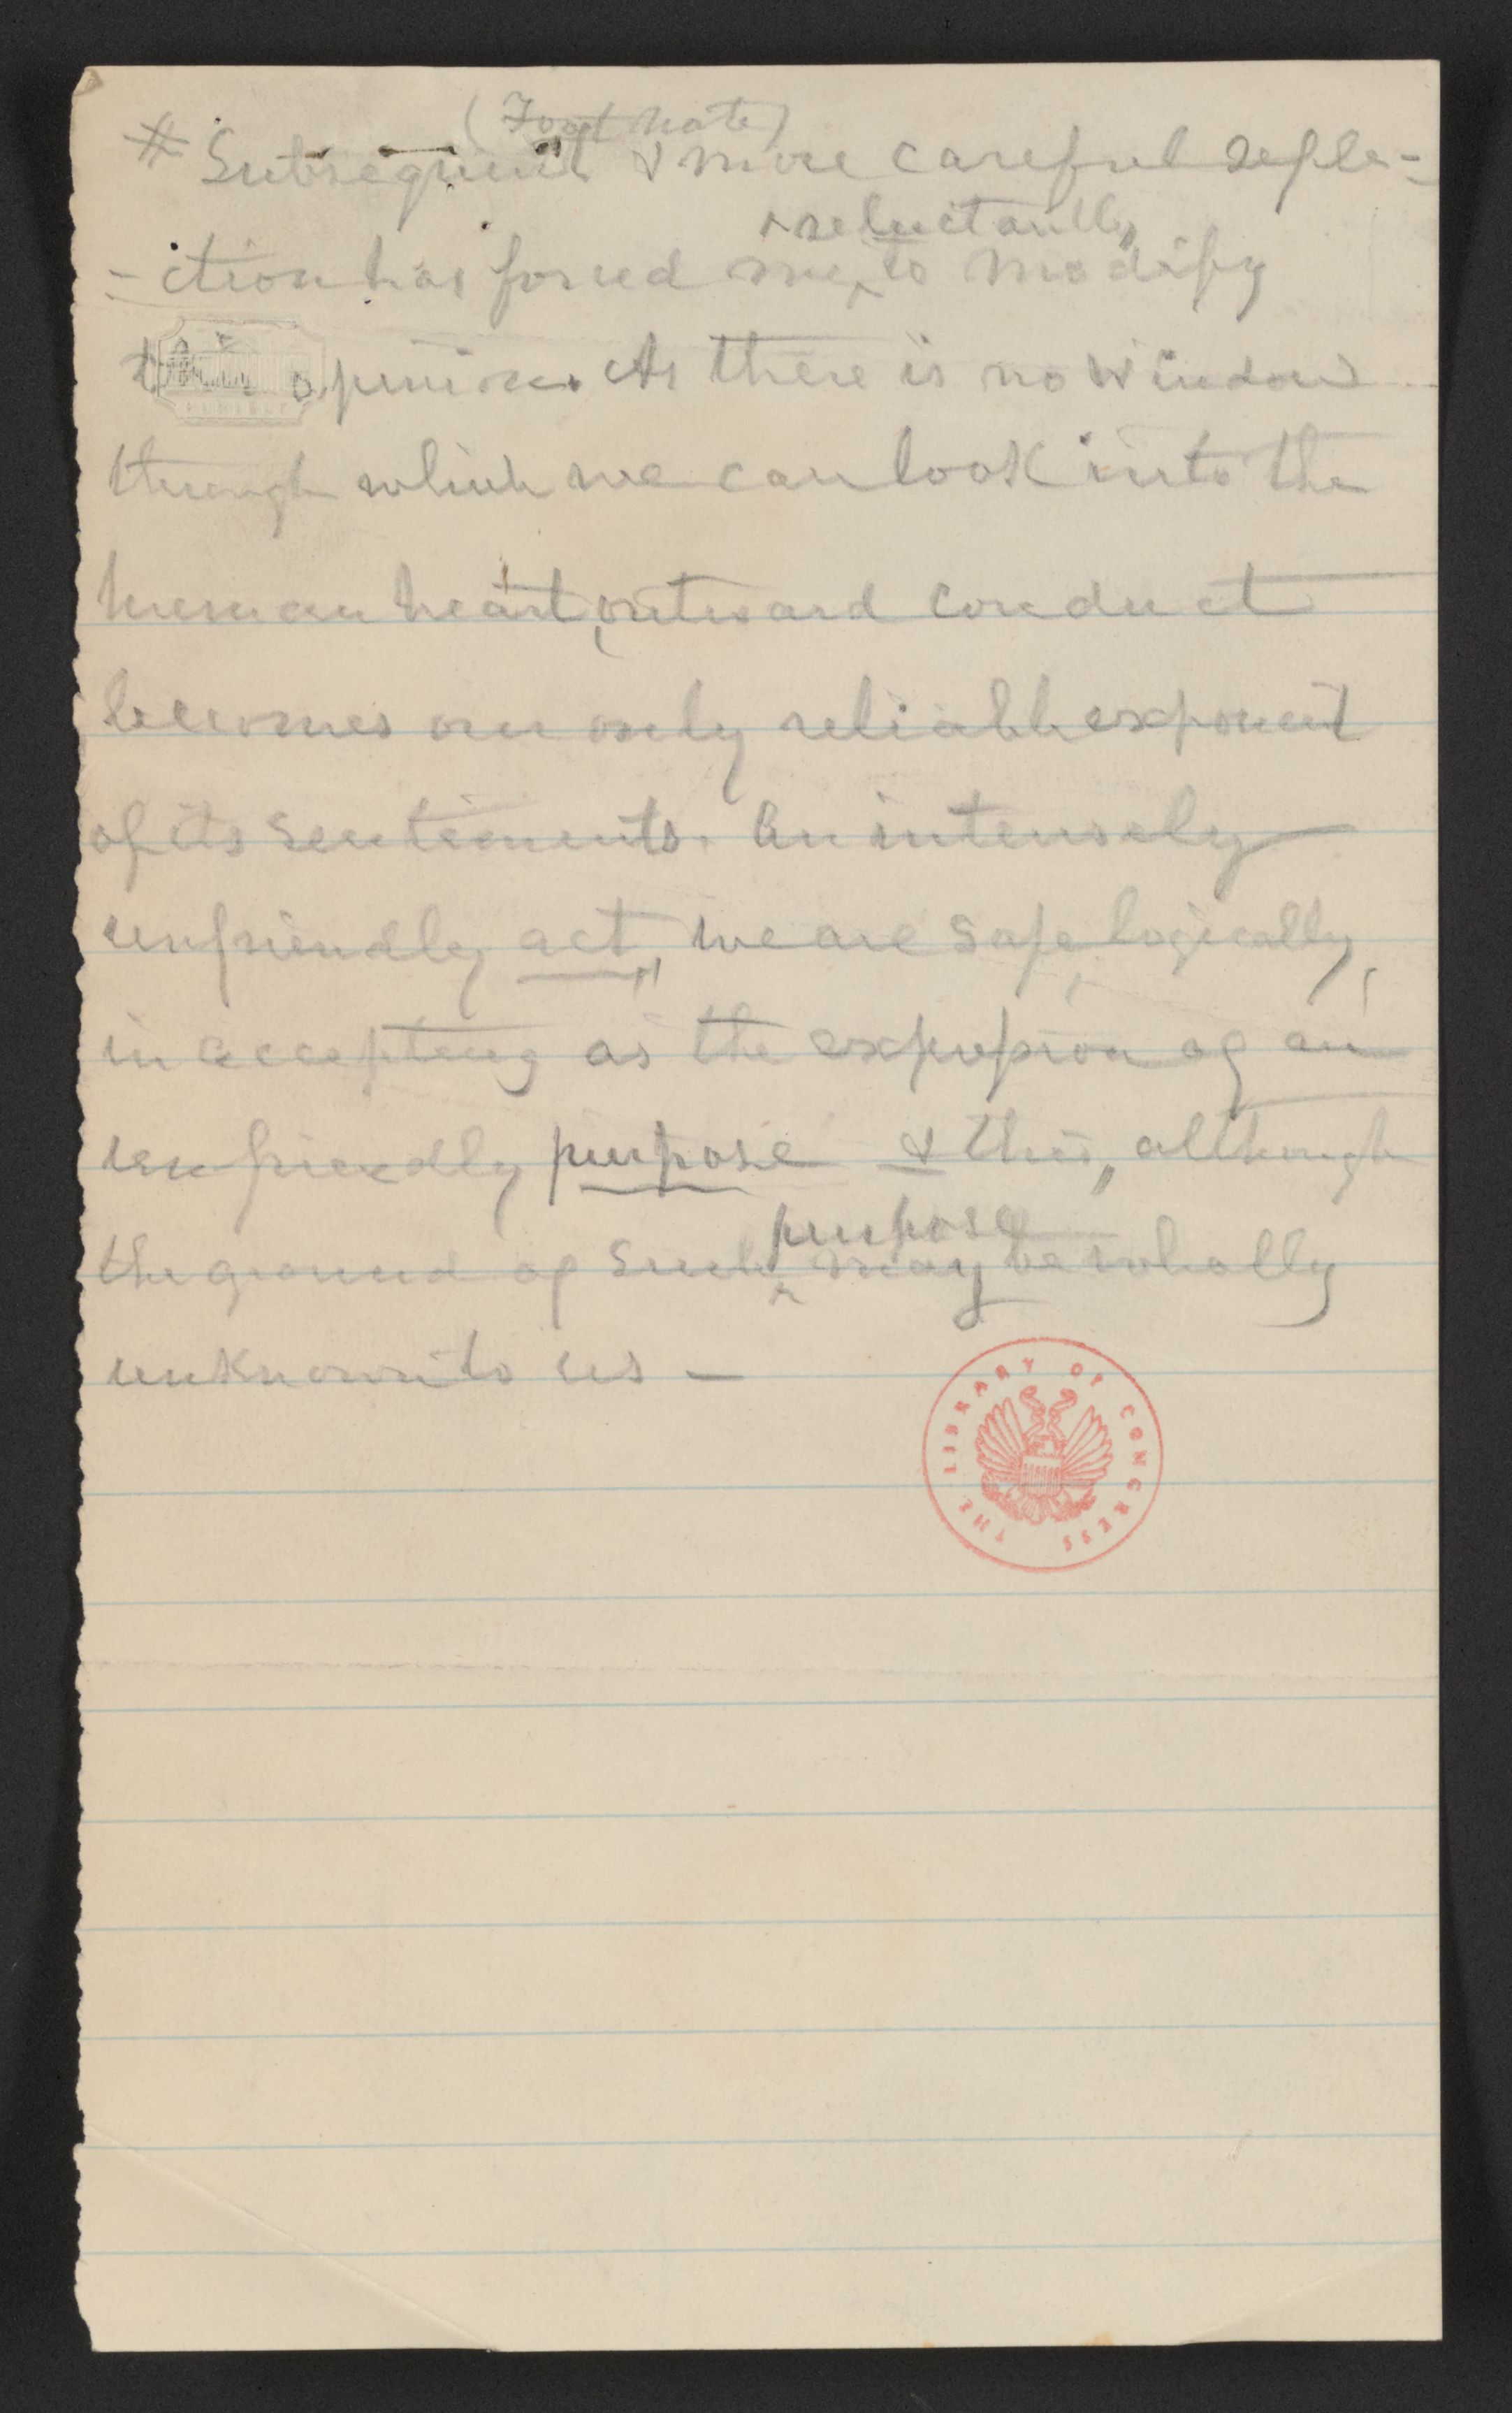 (Foot note)
* Subsequent & more careful refle-
-ction has forced me, reluctantly, to modify
opinion. As there is no window
through which we can look into the
human heart, outward conduct
becomes our only reliable exponent
of its sentiments. An intensely
unfriendly act, we are safe, logically,
in accepting as the expression of an
unfriendly purpose & this, although
the ground of such purpose may be wholly
unknown to us —
THE LIBRARY OF CONGRESS